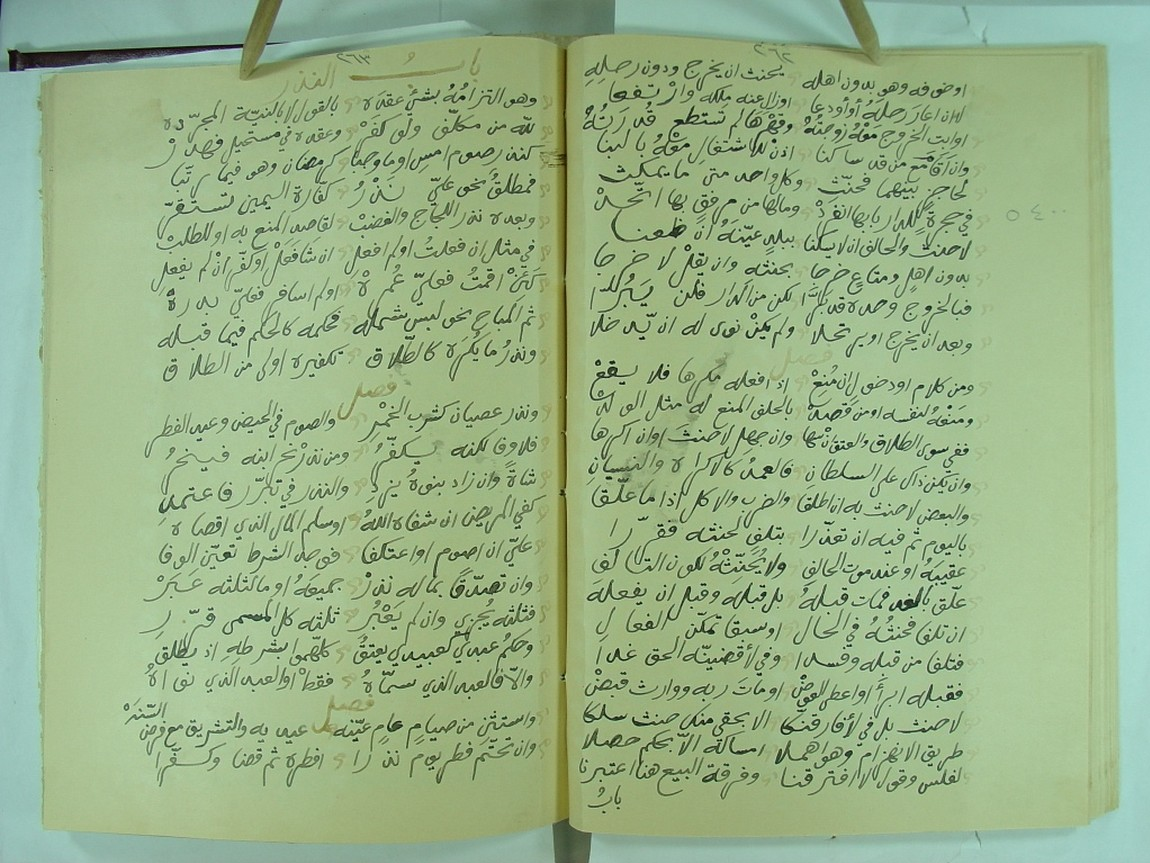 ٢٦٢
اوضوفه وهو بدون اهله يحنث ان يخرج ودون رحله
لا ان اعار رحله أو أودعا اوزال عنه ملكه وارتفعا
اوابت الخروج معه زوجته وقهرها لم تستطع قدرته
وان اقامع من قد ساكنا اذن للاشتغال معه بالبنا
لحاجز بينهما فحنث وكل واحد متى ما يمكث
في حجرة للدار بابها انفرد ومالها من مرفق بها اتحد
لا حنث والحالف ان لا يسكنا ببلد عينه أن ظعنا
بدون اهل ومتاع خرجا بحنثه وان يقل لا خرجا
فبالخروج وحده قد بر لكن من الدار فلن يبر
وبعد ان يخرج اوير تحلا ولم يكن نوى له ان يدخلا
فصل
ومن كلام اودخول ان منع اذ افعله مكرها فلا يقع
ومنعه لنفسه اومن قصد بالحلف المنع له مثل الولد
ففي سوى الطلاق والعتق سها وان جهل لا حنث اوان اكرها
وان يكن ذاك على السلطان فالعمد كالاكراه والنسيان
والبعض لا حنث به ان اطلقا والضرب والاكل اذا ما علقا
باليوم ثم فيه ان تعذرا بتلف لحنثه فقررا
عقيبه اوعند موت الحالف ولا يحنثه لكون التالف
علق بالغد فمات قبله بل قبله وقبل ان يفعله
ان تلفا فحنثه في الحال اوسبقا تمكن الفعال
فتلفا من قبله وقسدا وفي لأقضينه الحق غدا
فقبله ابرأ اواعطى العوض اومات ربه ووارث قبض
لا حنث بل في لا فارقتكا الا بحقي منك حنث سلكا
طريق الانهزام وهو اهملا امساكه الا بحكم حصلا
لفلس وقول لا افترقنا وفرقة البيع هنا اعتبرنا
باب
٢٦٣
باب النذر
وهو التزامه بشئ عقده بالقول لا بالنية المجرده
لله من مكلف ولو كفر وعقده في مستحيل فهدر
كنذر صوم امس اوما وجبا كرمضان وهو فيما رتبا
فمطلق نحو علي نذر كفارة اليمين تستقر
وبعده نذر اللجاج والغضب لقاصد المنع به اوللطلب
في مثل ان فعلت اولم افعل ان شا فعل اوكفر ان لم يفعل
كئن اقمت فعلي عمره اولم اسافر فعلي بدره
ثم المباح نحو لبس شمله فحكمه كالحكم فيما قبله
ونذر ما يكره كالطلاق تكفيره اولى من الطلاق
فصل
ونذر عصيان كشرب الخمر والصوم في الحيض وعيد الفطر
فلا وفا لكنه يكفر ومن نذر نحر ابنه فينحر
شاة وان زاد بنوه يزد والنذر في تبرر فاعتمد
كفي المريض ان شفاه الله اوسلم المال الذي اقصاه
علي ان اصوم اواعتكفا فوجد الشرط تعين الوفا
وان تصدقا بماله نذر جميعه اومالثلثه عبر
فثلثه يجزي وان لم يعبر ثلثه كل المسمى قرر
وحكم عبدي لعبيدي يعتق كلهموا بشرطه اذ يطلق
والا فالعبد الذي سماه فقط اوالعبد الذي نواه
فصل
واستثن من صيام عام عينه عيديه والتشريق مع فرض السنه
وان تحتم فطر يوم نذرا افطره ثم قضا وكفرا